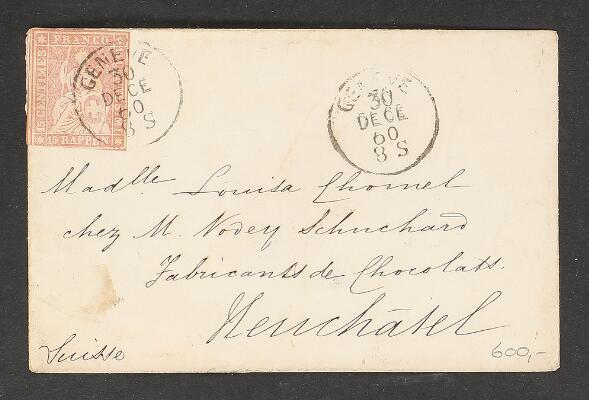 FRANCO
15 CENTIMES
15 RAPPEN
GENÈVE
30
DECE
60
8 S
GENÈVE
30
DECE
60
8 S
Madlle. Louisa Chomel
chez M. Vodey Schuchard
Fabricants de Chocolats.
Neuchâtel
Suisse
600,-